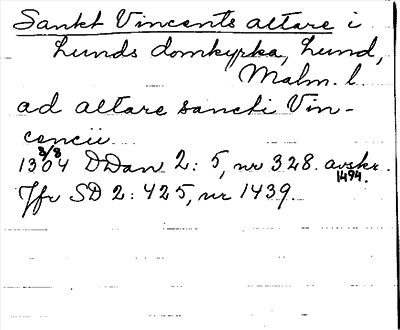 Sankt Vincents altare i
Lunds domkyrka, Lund,
Malm. l.
ad altare sancti Vin-
cencii
8/8
1304 DDan 2: 5, nr 328. avskr.
1494.
Jfr SD 2: 425, nr 1439.